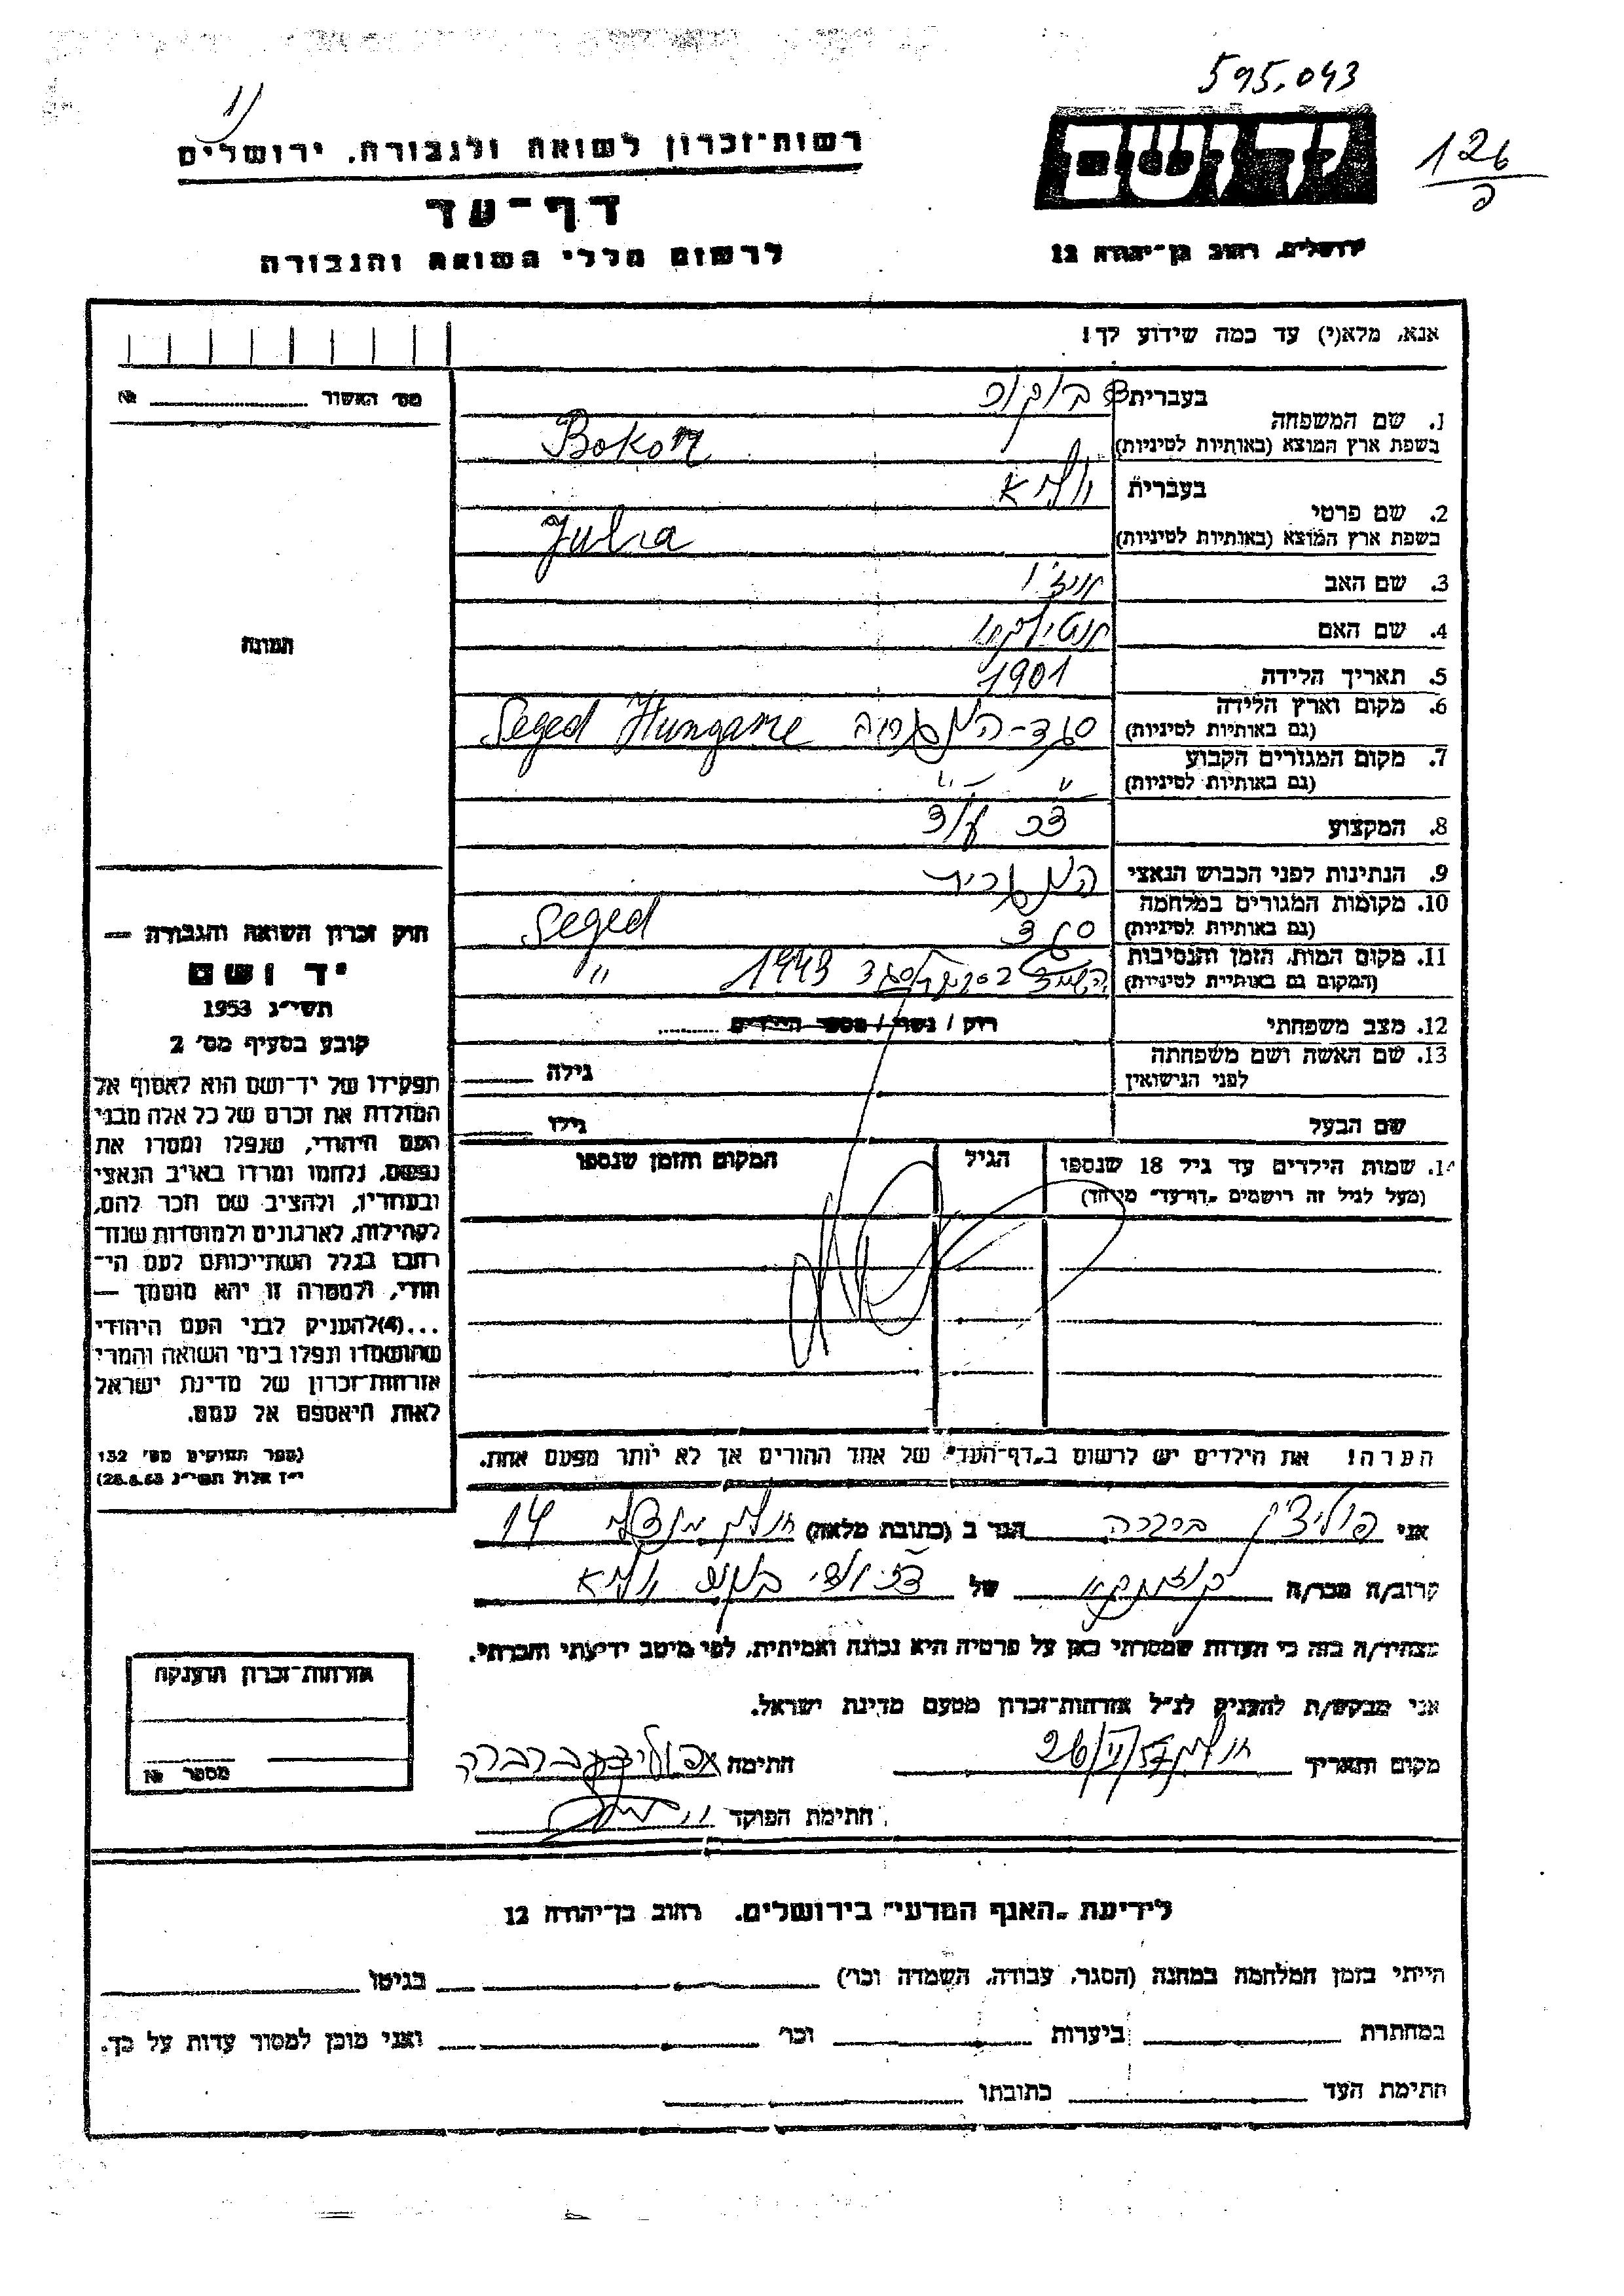 595.043
רשות־זכרון לשואה ולגבורה, ירושלים
יד ושם
126
דף־עד
לרשום חללי השואה והגבורה
ירושלים, רחוב בן־יהודה 12
אנא, מלא(י) עד כמה שידוע לך!
מס' האשור № 
בעברית
1. שם המשפחה
בשפת ארץ המוצא (באותיות לטיניות) Bokor
בעברית יוליא
2. שם פרטי
בשפת ארץ המוצא (באותיות לטיניות) Julia
3. שם האב
4. שם האם
5. תאריך הלידה 1901
6. מקום וארץ הלידה
(גם באותיות לטיניות) סגד - הונגריה Seged Hungarie
7. מקום המגורים הקבוע
(גם באותיות לטיניות) " — "
8. המקצוע
9. הנתינות לפני הכבוש הנאצי
10. מקומות המגורים במלחמה
(גם באותיות לטיניות) סגד Seged
11. מקום המות, הזמן והנסיבות
(המקום גם באותיות לטיניות) 1943 "
12. מצב משפחתי רווק / נשוי / מספר הילדים
13. שם האשה ושם משפחתה גילה
לפני הנישואין
שם הבעל גילו
14. שמות הילדים עד גיל 18 שנספו הגיל המקום והזמן שנספו
(מעל לגיל זה רושמים „דף־עד" מיוחד)
הערה! את הילדים יש לרשום ב„דף־העד" של אחד ההורים אך לא יותר מפעם אחת.
תמונה
חוק זכרון השואה והגבורה —
יד ושם
תשי"ג 1953
קובע בסעיף מס' 2
תפקידו של יד־ושם הוא לאסוף אל
המולדת את זכרם של כל אלה מבני
העם היהודי, שנפלו ומסרו את
נפשם, נלחמו ומרדו באויב הנאצי
ובעוזריו, ולהציב שם וזכר להם,
לקהילות, לארגונים ולמוסדות שנח־
רבו בגלל השתייכותם לעם הי־
הודי, ולמטרה זו יהא מוסמך —
...(4)להעניק לבני העם היהודי
שהושמדו ונפלו בימי השואה והמרי
אזרחות־זכרון של מדינת ישראל
לאות היאספם אל עמם.
(ספר החוקים מס' 132
י"ז אלול תשי"ג 28.8.53)
אני ברברה הגר ב (כתובת מלאה) 14
קרוב/ה מכר/ה של יוליא
מצהיר/ה בזה כי העדות שמסרתי כאן על פרטיה היא נכונה ואמיתית, לפי מיטב ידיעתי והכרתי.
אני מבקש/ת להעניק לנ"ל אזרחות־זכרון מטעם מדינת ישראל.
מקום ותאריך חתימה ברברה
חתימת הפוקד
אזרחות־זכרון הוענקה
מספר №
לידיעת „האגף המדעי" בירושלים, רחוב בן־יהודה 12
הייתי בזמן המלחמה במחנה (הסגר, עבודה, השמדה וכו') בגיטו
במחתרת ביערות וכו' ואני מוכן למסור עדות על כך.
חתימת העד כתובתו